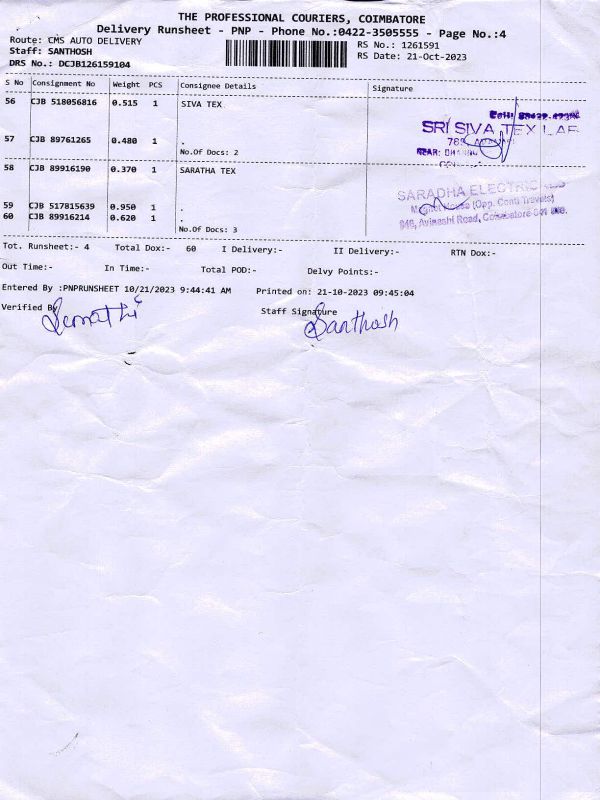 THE PROFESSIONAL COURIERS, COIMBATORE
Delivery Runsheet - PNP - Phone No.:0422-3505555 - Page No.:4
Route: CMS AUTO DELIVERY
RS No.: 1261591
Staff: SANTHOSH
RS Date: 21-Oct-2023
DRS No.: DCJB126159104
S No Consignment No Weight PCS Consignee Details Signature
56 CJB 518056816 0.515 1 SIVA TEX
SRI SIVA TEX LAB
57 CJB 89761265 0.480 1 .
NEAR:
No.Of Docs: 2
58 CJB 89916190 0.370 1 SARATHA TEX
SARADHA ELECTRIC
(Opp. Conti Travels)
59 CJB 517815639 0.950 1 .
60 CJB 89916214 0.620 1 .
Avinashi Road, Coimbatore
No.Of Docs: 3
Tot. Runsheet:- 4 Total Dox:- 60 I Delivery:- II Delivery:- RTN Dox:-
Out Time:- In Time:- Total POD:- Delvy Points:-
Entered By :PNPRUNSHEET 10/21/2023 9:44:41 AM Printed on: 21-10-2023 09:45:04
Verified By
Staff Signature
Santhosh